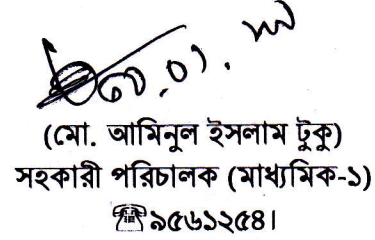 (মো. আমিনুল ইসলাম টুকু)
সহকারী পরিচালক (মাধ্যমিক-১)
☎৯৫৬১২৫৪।